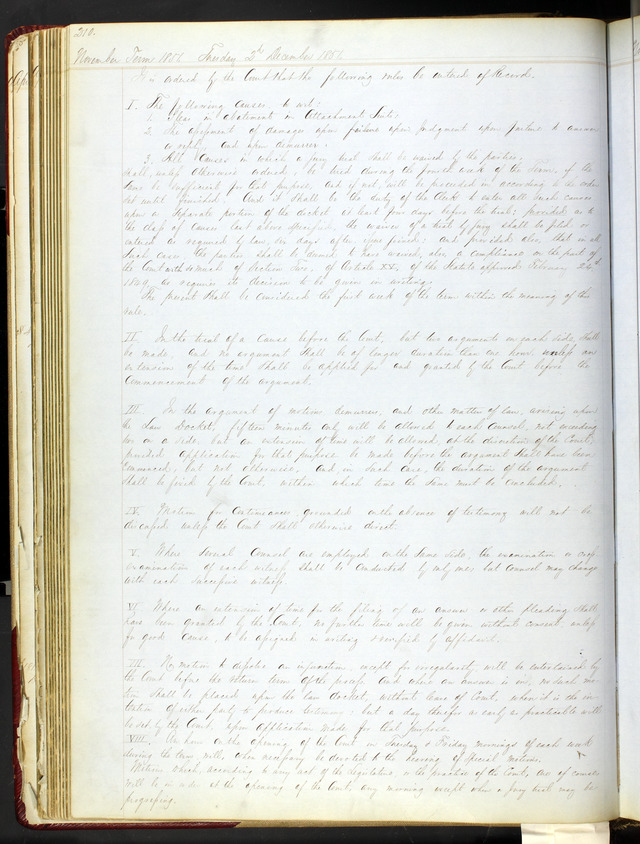 210.
November Term 1856 Tuesday 2d December 1856.
It is ordered by the Court that the following rules be entered of Record.
I. The following Causes, to wit:
1. Pleas in Abatement in Attachment Suits;
2. The assessment of damages upon failure upon Judgment upon failure to answer
or reply, and upon demurrer;
3. All Causes in which a jury trial shall be waived by the parties;
Shall, unless otherwise ordered, be tried during the fourth week of the Term, if the
time be sufficient for that purpose, and if not, will be proceeded in according to the order
set until finished. And it shall be the duty of the Clerk to enter all such causes
upon a separate portion of the docket, at least four days before the trial; provided as to
the class of causes last above specified, the waiver of a trial by jury shall be filed or
entered as required by law, ten days after issue joined; and provided also, that in all
such cases, the parties shall be deemed to have waived, also, a compliance on the part of
the Court with so much of Section Two, of Article XX, of the Statute approved February 24th
1849, as requires its decision to be given in writing.
The present shall be considered the first week of the term within the meaning of this
rule.
II. In the trial of a cause before the Court, but two arguments on each side, shall
be made, and no argument shall be of longer duration than one hour, unless an
extension of the time shall be applied for and granted by the Court before the
commencement of the argument.
III. In the argument of motions demurrers, and other matters of law, arising upon
the Law Docket, fifteen minutes only will be allowed to each Counsel, not exceeding
two on a side, but an extension of time will be allowed, at the discretion of the Court;
provided application for that purpose be made before the argument shall have been
commenced, but not otherwise, and, in such case, the duration of the argument
shall be fixed by the Court, within which time the same must be concluded.
IV. Motions for Continuances grounded on the absence of testimony will not be
discussed unless the Court shall otherwise direct.
V. Where Several Counsel are employed on the same side, the examination or cross
examination of each witness shall be conducted by only one; but counsel may change
with each successive witness.
VI. Where an extension of time for the filing of an answer or other pleading shall
have been granted by the Court, no further time will be given without consent, unless
for good cause, to be assigned in writing & verified by affidavit.
VII. No motion to dissolve an injunction, except for irregularity, will be entertained by
the Court before the return term of the process. And when an answer is in, no such mo-
tion shall be placed upon the law docket, without leave of Court, when it is the in-
tention of either party to produce testimony; but a day therefor as early as practicable will
be set by the Court, upon application made for that purpose.
VIII. An hour on the opening of the Court on Tuesday & Friday mornings of each week
during the term, will, when necessary be devoted to the hearing of special motions.
Motions which, according to any act of the Legislature, or the practice of the Court, are of course
will be in order at the opening of the Court, any morning except when a jury trial may be
progressing.